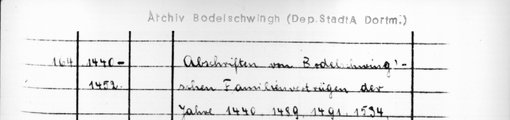 Archiv Bodelschwingh (Dep. StadtA Dortm.)
164 1440- Abschriften von Bodelschwing'-
1452. schen Familienverträgen der
Jahre 1440, 1489, 1491, 1534,